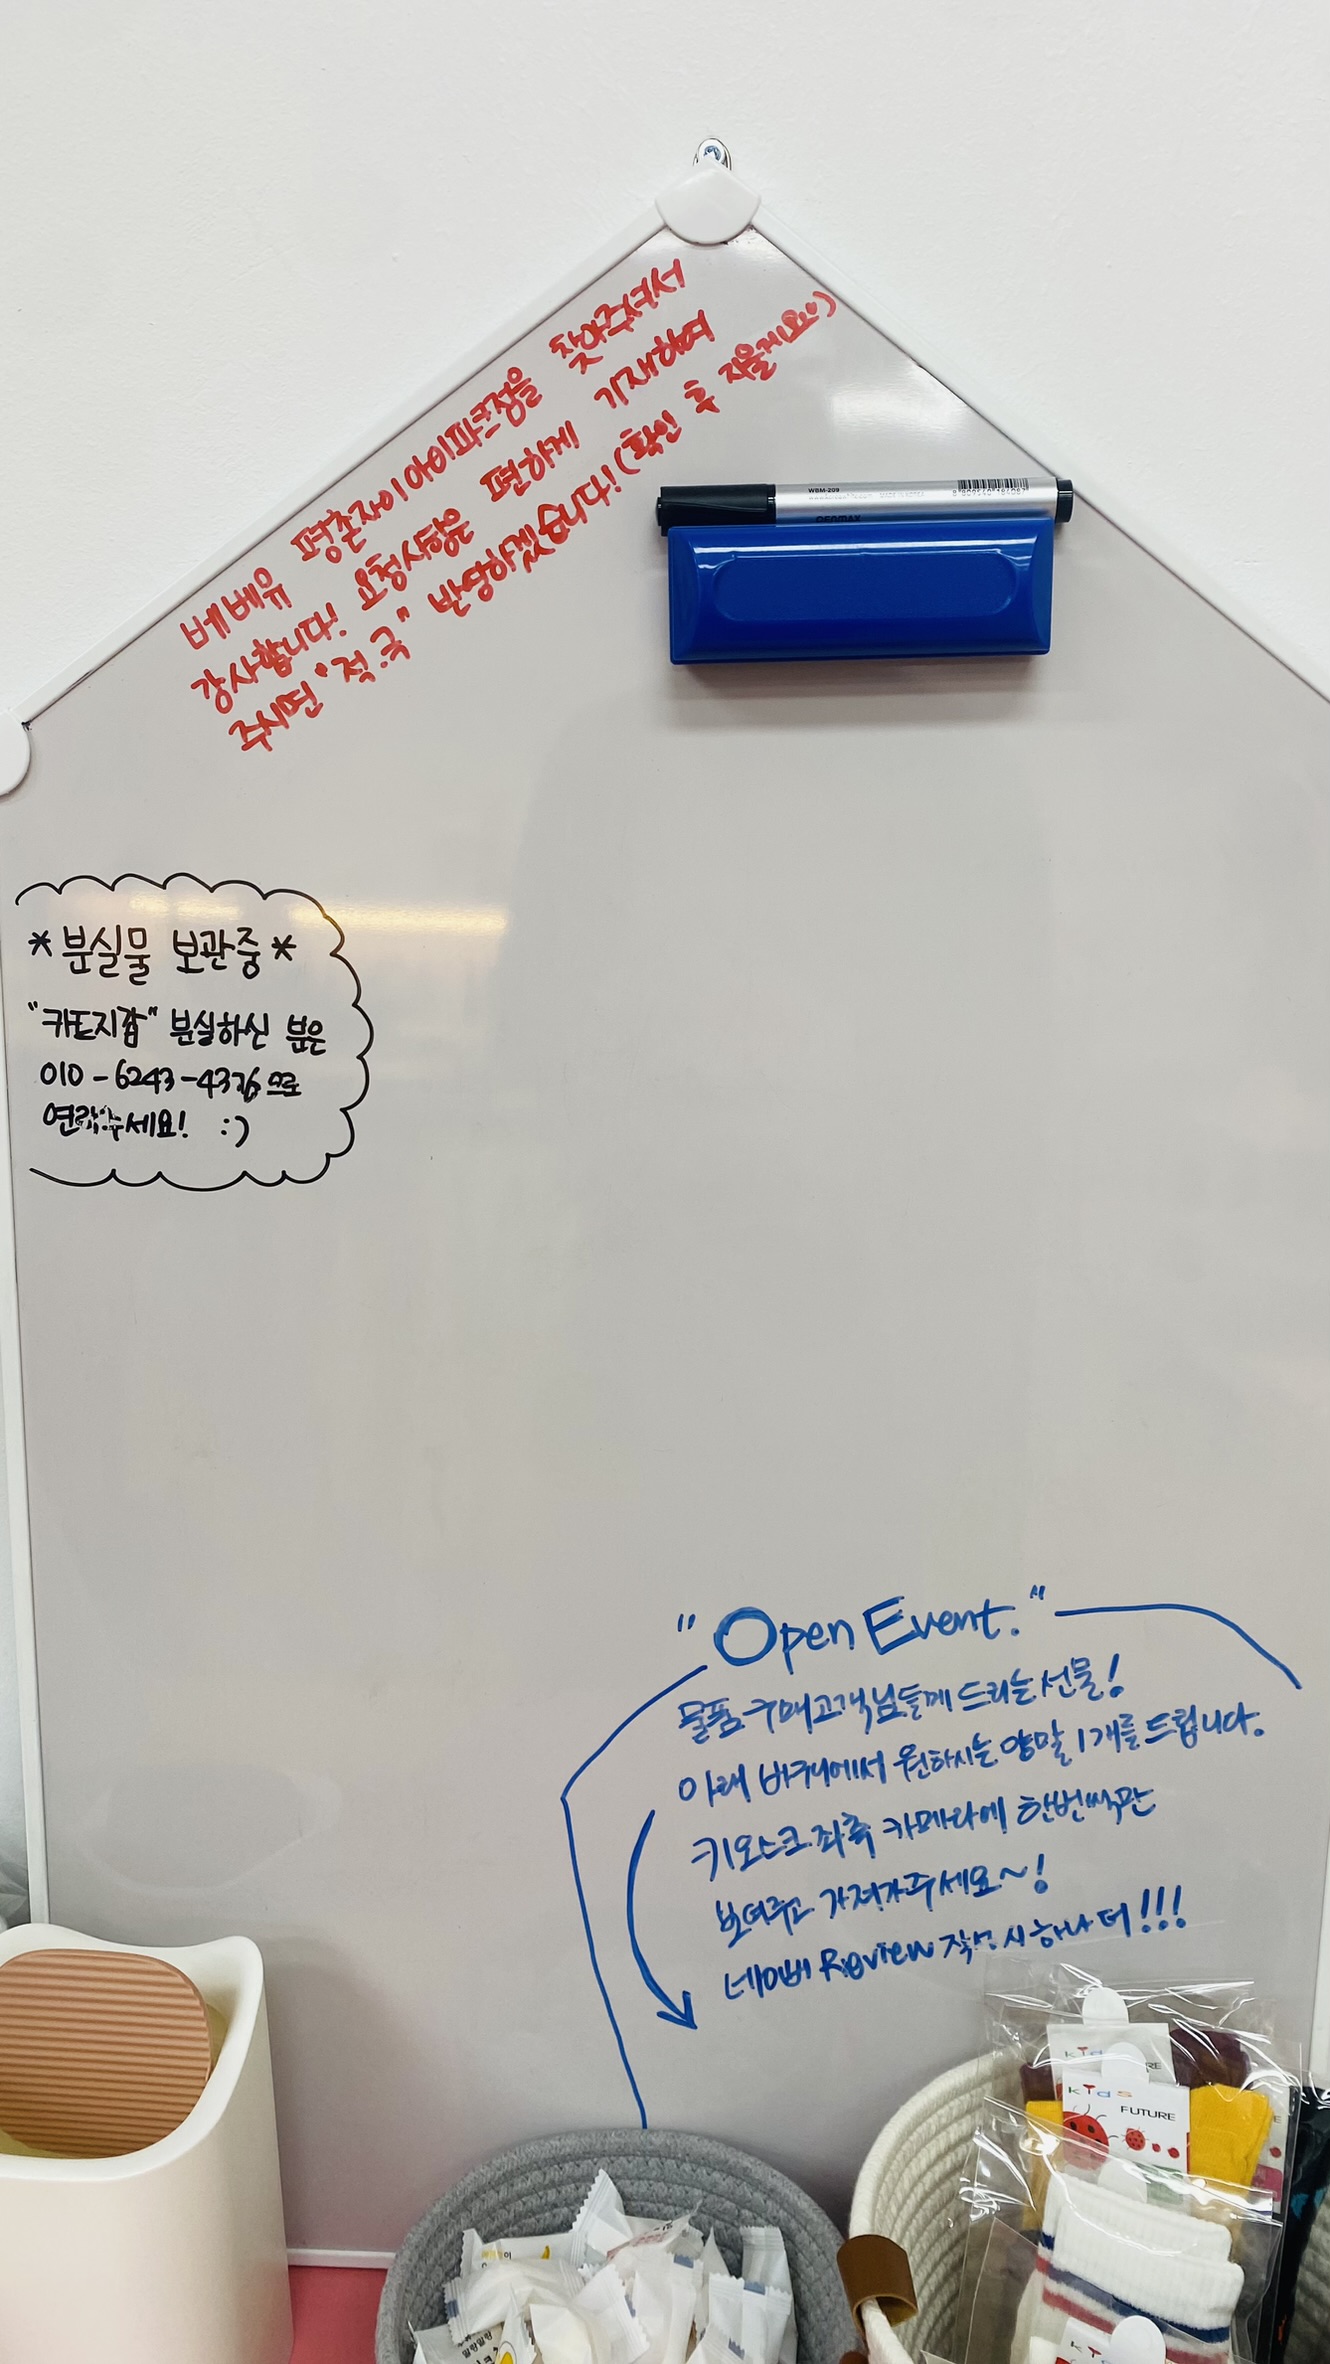 베베유 평촌자이아이파크점을 찾아주셔서
감사합니다! 요청사항은 편하게 기재하여
주시면 "적.극" 반영하겠습니다! (확인 후 지울게요^^)
WBM-209
*분실물 보관중*
"카드지갑" 분실하신 분은
연락주세요! :)
"Open Event."
물품구매고객님들께 드리는 선물!
아래 바구니에서 원하시는 양말 1개를 드립니다.
키오스크 좌측 카메라에 한번씩만
보여주고 가져가주세요~!
네이버 Review 작성시 하나 더!!!
kids
FUTURE